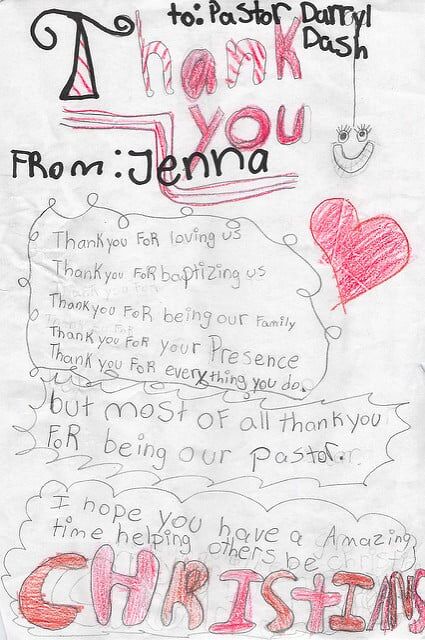 to: Pastor Darryl
Dash
Thank
you
From: Jenna
Thank you FoR loving us
Thank you FoR baptizing us
Thank you FoR being our Family
Thank you FoR your Presence
Thank you FoR everything you do.
but most of all thank you
FoR being our pastor.
I hope you have a Amazing
time helping others be
CHRIStIANS